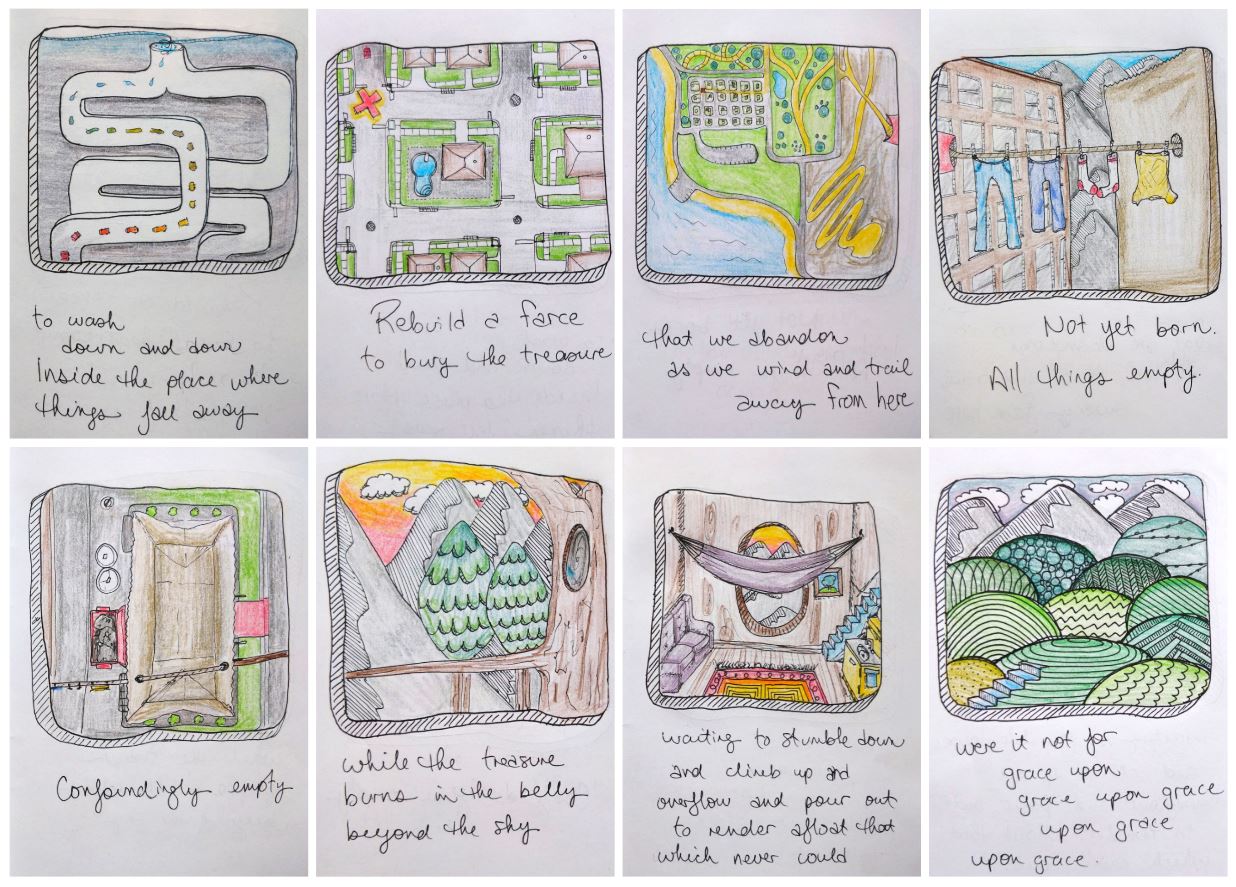 to wash
down and down
Inside the place where
things fall away
Rebuild a farce
to bury the treasure
that we abandon
as we wind and trail
away from here
Not yet born.
All things empty.
Confoundingly empty
while the treasure
burns in the belly
beyond the sky
waiting to stumble down
and climb up and
overflow and pour out
to render afloat that
which never could
were it not for
grace upon
grace upon grace
upon grace
upon grace.